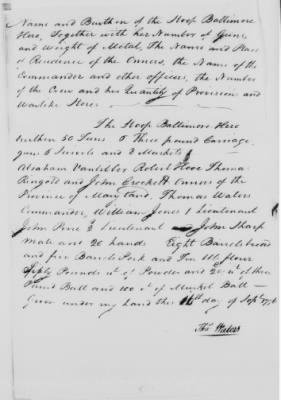 Name and Burthen of the Sloop Baltimore
Hero, Together with her Number of Guns,
and Weight of Metal, The Name and Place
of Residence of the Owners, the Name of the
Commander and other officers, the Number
of the Crew and her Quantity of Provision and
Warlike Stores
The Sloop Baltimore Hero
burthen 50 Tuns 6 Three pound Carriage
guns 6 Swivels and 8 Muskets
Abraham Vanbibber Robert Hooe Thomas
Ringold and John Crockett Owners of the
Province of Maryland, Thomas Waters
Commander, William Jones 1 Lieutenant
John 2 Lieutenant John Sharp
Mate and 20 hands Eight Barrels bread
and five Barrels Pork and Ten flour
Fifty Pounds wt of Powder and 20 wt of three
Pound Ball and 100 wt of Musket Ball
Given under my hand this 16th day of Sept 1776
Thos Waters